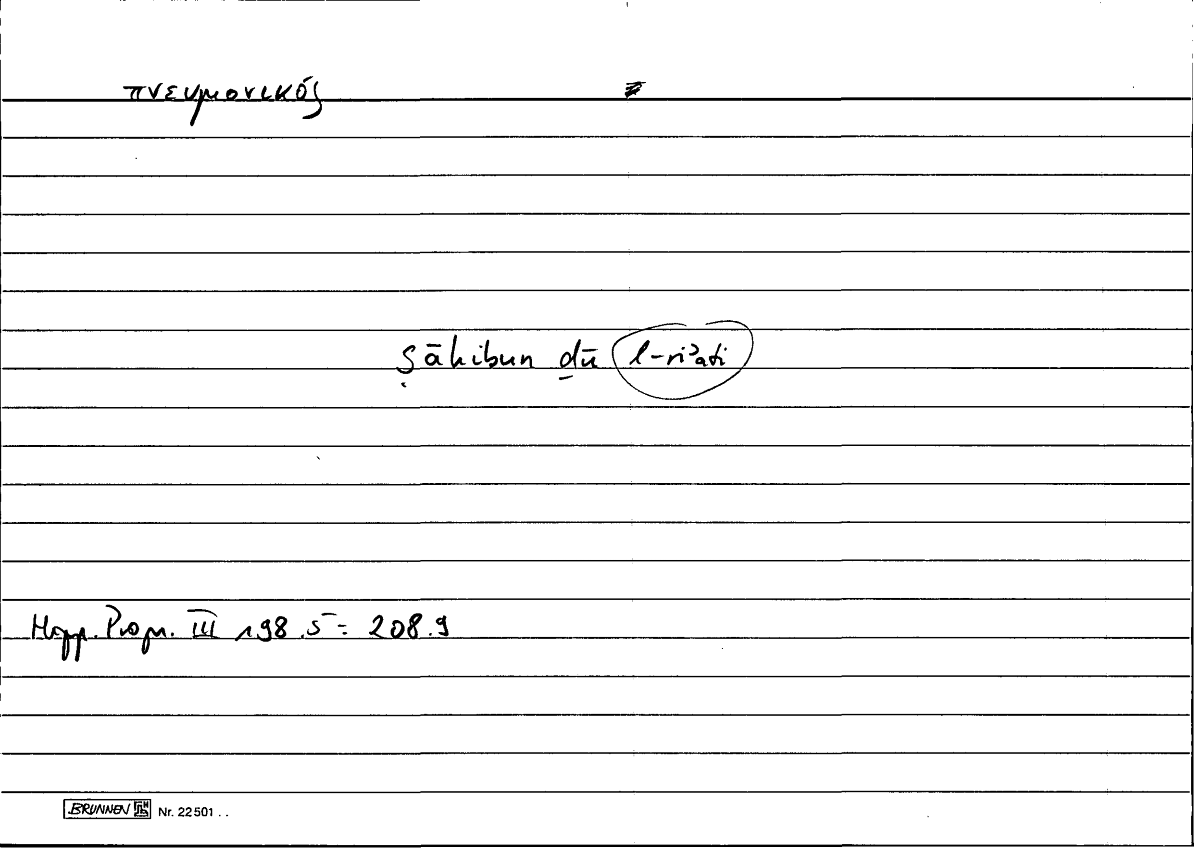 πνευμονικός
ṣāḥibun ḏū l-riʾati
Hipp. Progn. III 198.5 = 208.9
BRUNNEN Nr. 22501 ..